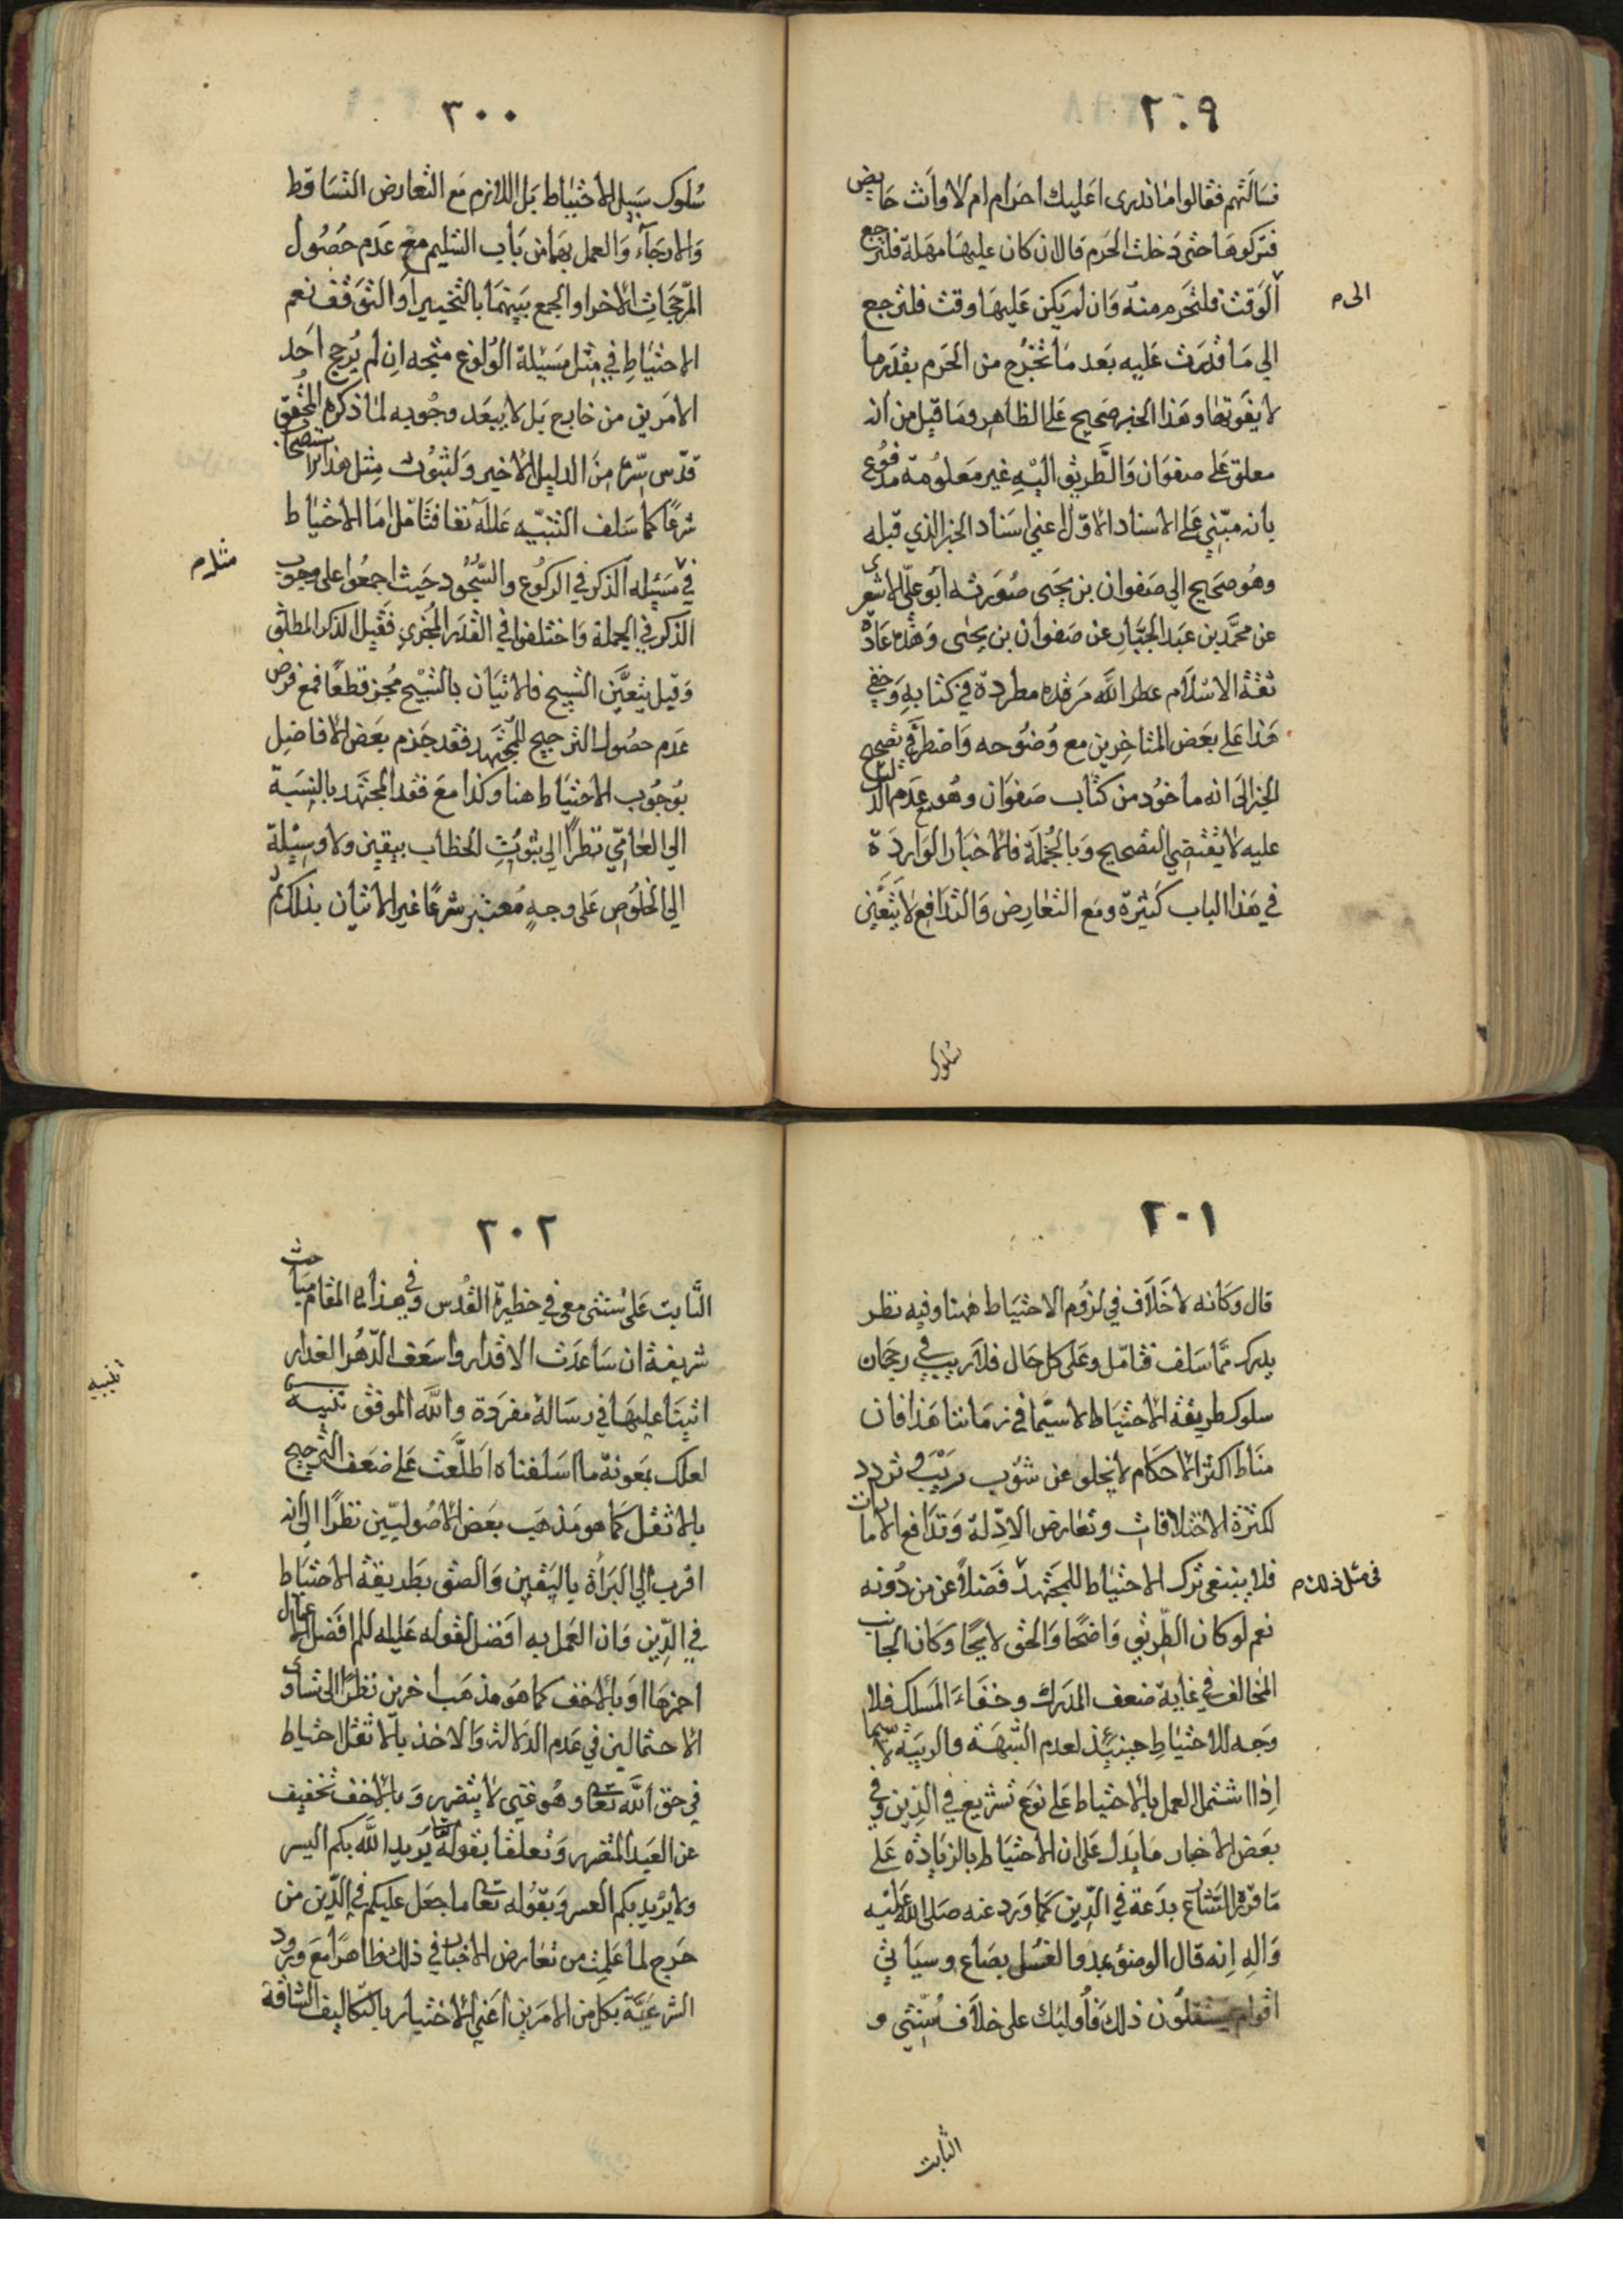 ٢٠٩
فسألتهم فقالوا ما ندرى اعليك احرام ام لا وانت حايض
فتركوها حتى دخلت الحرم قال ان كان عليها مهلة فلترجع
الوقت فلتحرم منه وان لم يكن عليها وقت فلترجع
الى م
الي ما قدرت عليه بعد ما تخرج من الحرم بقدر ما
لا يفوتها وهذا الخبر صحيح على الظاهر وما قيل من انه
معلق على صفوان والطريق اليه غير معلومة مدفوع
بانه مبني على الاسناد الاول اعني اسناد الخبر الذي قبله
وهو صحيح الي صفوان بن يحيى صورته ابو علي الاشعرى
عن محمد بن عبد الجبار عن صفوان بن يحيى وهذه عادة
ثقة الاسلام عطر الله مرقده مطردة في كتابه وخفي
هذا على بعض المتاخرين مع وضوحه واضطر في تصحيح
الخبر الى انه ماخوذ من كتاب صفوان وهو مع عدم الدليل
عليه لا يقتضي التصحيح وبالجملة فالاخبار الواردة
في هذا الباب كثيرة ومع التعارض والتدافع لا يتعين
سلوك
٣٠٠
سلوك سبيل الاحتياط بل اللازم مع التعارض التساقط
والارجاء والعمل بهما من باب التسليم مع عدم حصول
المرجحات الاخر او الجمع بينهما بالتخيير او التوقف نعم
الاحتياط في مثل مسئلة الولوغ متجه ان لم يرجح احد
الامرين من خارج بل لا يبعد وجوبه لما ذكره المحقق
قدس سره من الدليل الاخير ولثبوت مثل هذا الاستصحاب
شرعا كما سلف التنبيه على له نفا فتامل اما الاحتياط
في مسئله الذكر في الركوع والسجود حيث اجمعوا على وجوب
مثل م
الذكر في الجملة واختلفوا في القدر المجزي فقيل الذكر المطلق
وقيل يتعين التسبيح فالاتيان بالتسبيح مجز قطعا فمع فرض
عدم حصول الترجيح للمجتهد فقد جزم بعض الافاضل
بوجوب الاحتياط هنا وكذا مع فقد المجتهد بالنسبة
الي العامي نظرا الي ثبوت الخطاب بيقين ولا وسيلة
الي الخلوص على وجه معتبر شرعا غير الاتيان بذلك ثم
٢٠١
قال وكانه لا خلاف في لزوم الاحتياط ههنا وفيه نظر
يدرك مما سلف فتامل وعلى كل حال فلا ريب في رجحان
سلوك طريقة الاحتياط لا سيما في زماننا هذا فان
مناط اكثر الاحكام لا يخلو عن شوب ريب و تردد
لكثرة الاختلافات وتعارض الادلة وتدافع الامارات
فلا ينبغى ترك الاحتياط للمجتهد فضلا عن من دونه
فى مثل ذلك م
نعم لو كان الطريق واضحا والحق لايحا وكان الجانب
المخالف في غاية ضعف المدرك وخفاء المسلك فلا
وجه للاحتياط حينئذ لعدم الشبهة والريبة لا سيما
اذا اشتمل العمل بالاحتياط على نوع تشريع في الدين وفي
بعض الاخبار ما يدل على ان الاحتياط بالزيادة على
ما قرره الشارع بدعة في الدين كما ورد عنه صلى الله عليه
واله انه قال الوضوء بمد والغسل بصاع وسياتي
اقوام يستقلون ذلك فاولئك على خلاف سنتي و
الثابت
٣٠٢
الثابت على سنتى معى في حظيرة القدس وفي هذا المقام مباحث
شريفة ان ساعدت الاقدار واسعف الدهر الغدار
اتينا عليها في رسالة مفردة والله الموفق تنبيه
تنبيه
لعلك بمعونة ما اسلفناه اطلعت على ضعف الترجيح
بالاثقل كما هو مذهب بعض الاصوليين نظرا الى انه
اقرب الي البراة باليقين والصق بطريقة الاحتياط
في الدين وان العمل به افضل لقوله عليه السلم افضل الاعمال
احمزها او بالاخف كما هو مذهب اخرين نظرا الى تساوى
الاحتمالين في عدم الدلالة والاخذ بالاثقل احتياط
في حق الله تعا وهو غني لا يتضرر وبالاخف تخفيف
عن العبد المتضرر وتعلقا بقوله تعا يريد الله بكم اليسر
ولا يريد بكم العسر وبقوله تعا ما جعل عليكم في الدين من
حرج لما علمت من تعارض الاخبار في ذلك ظاهرا مع ورود
الشرعية بكل من الامرين اعني الاختيار بالتكاليف الشاقة